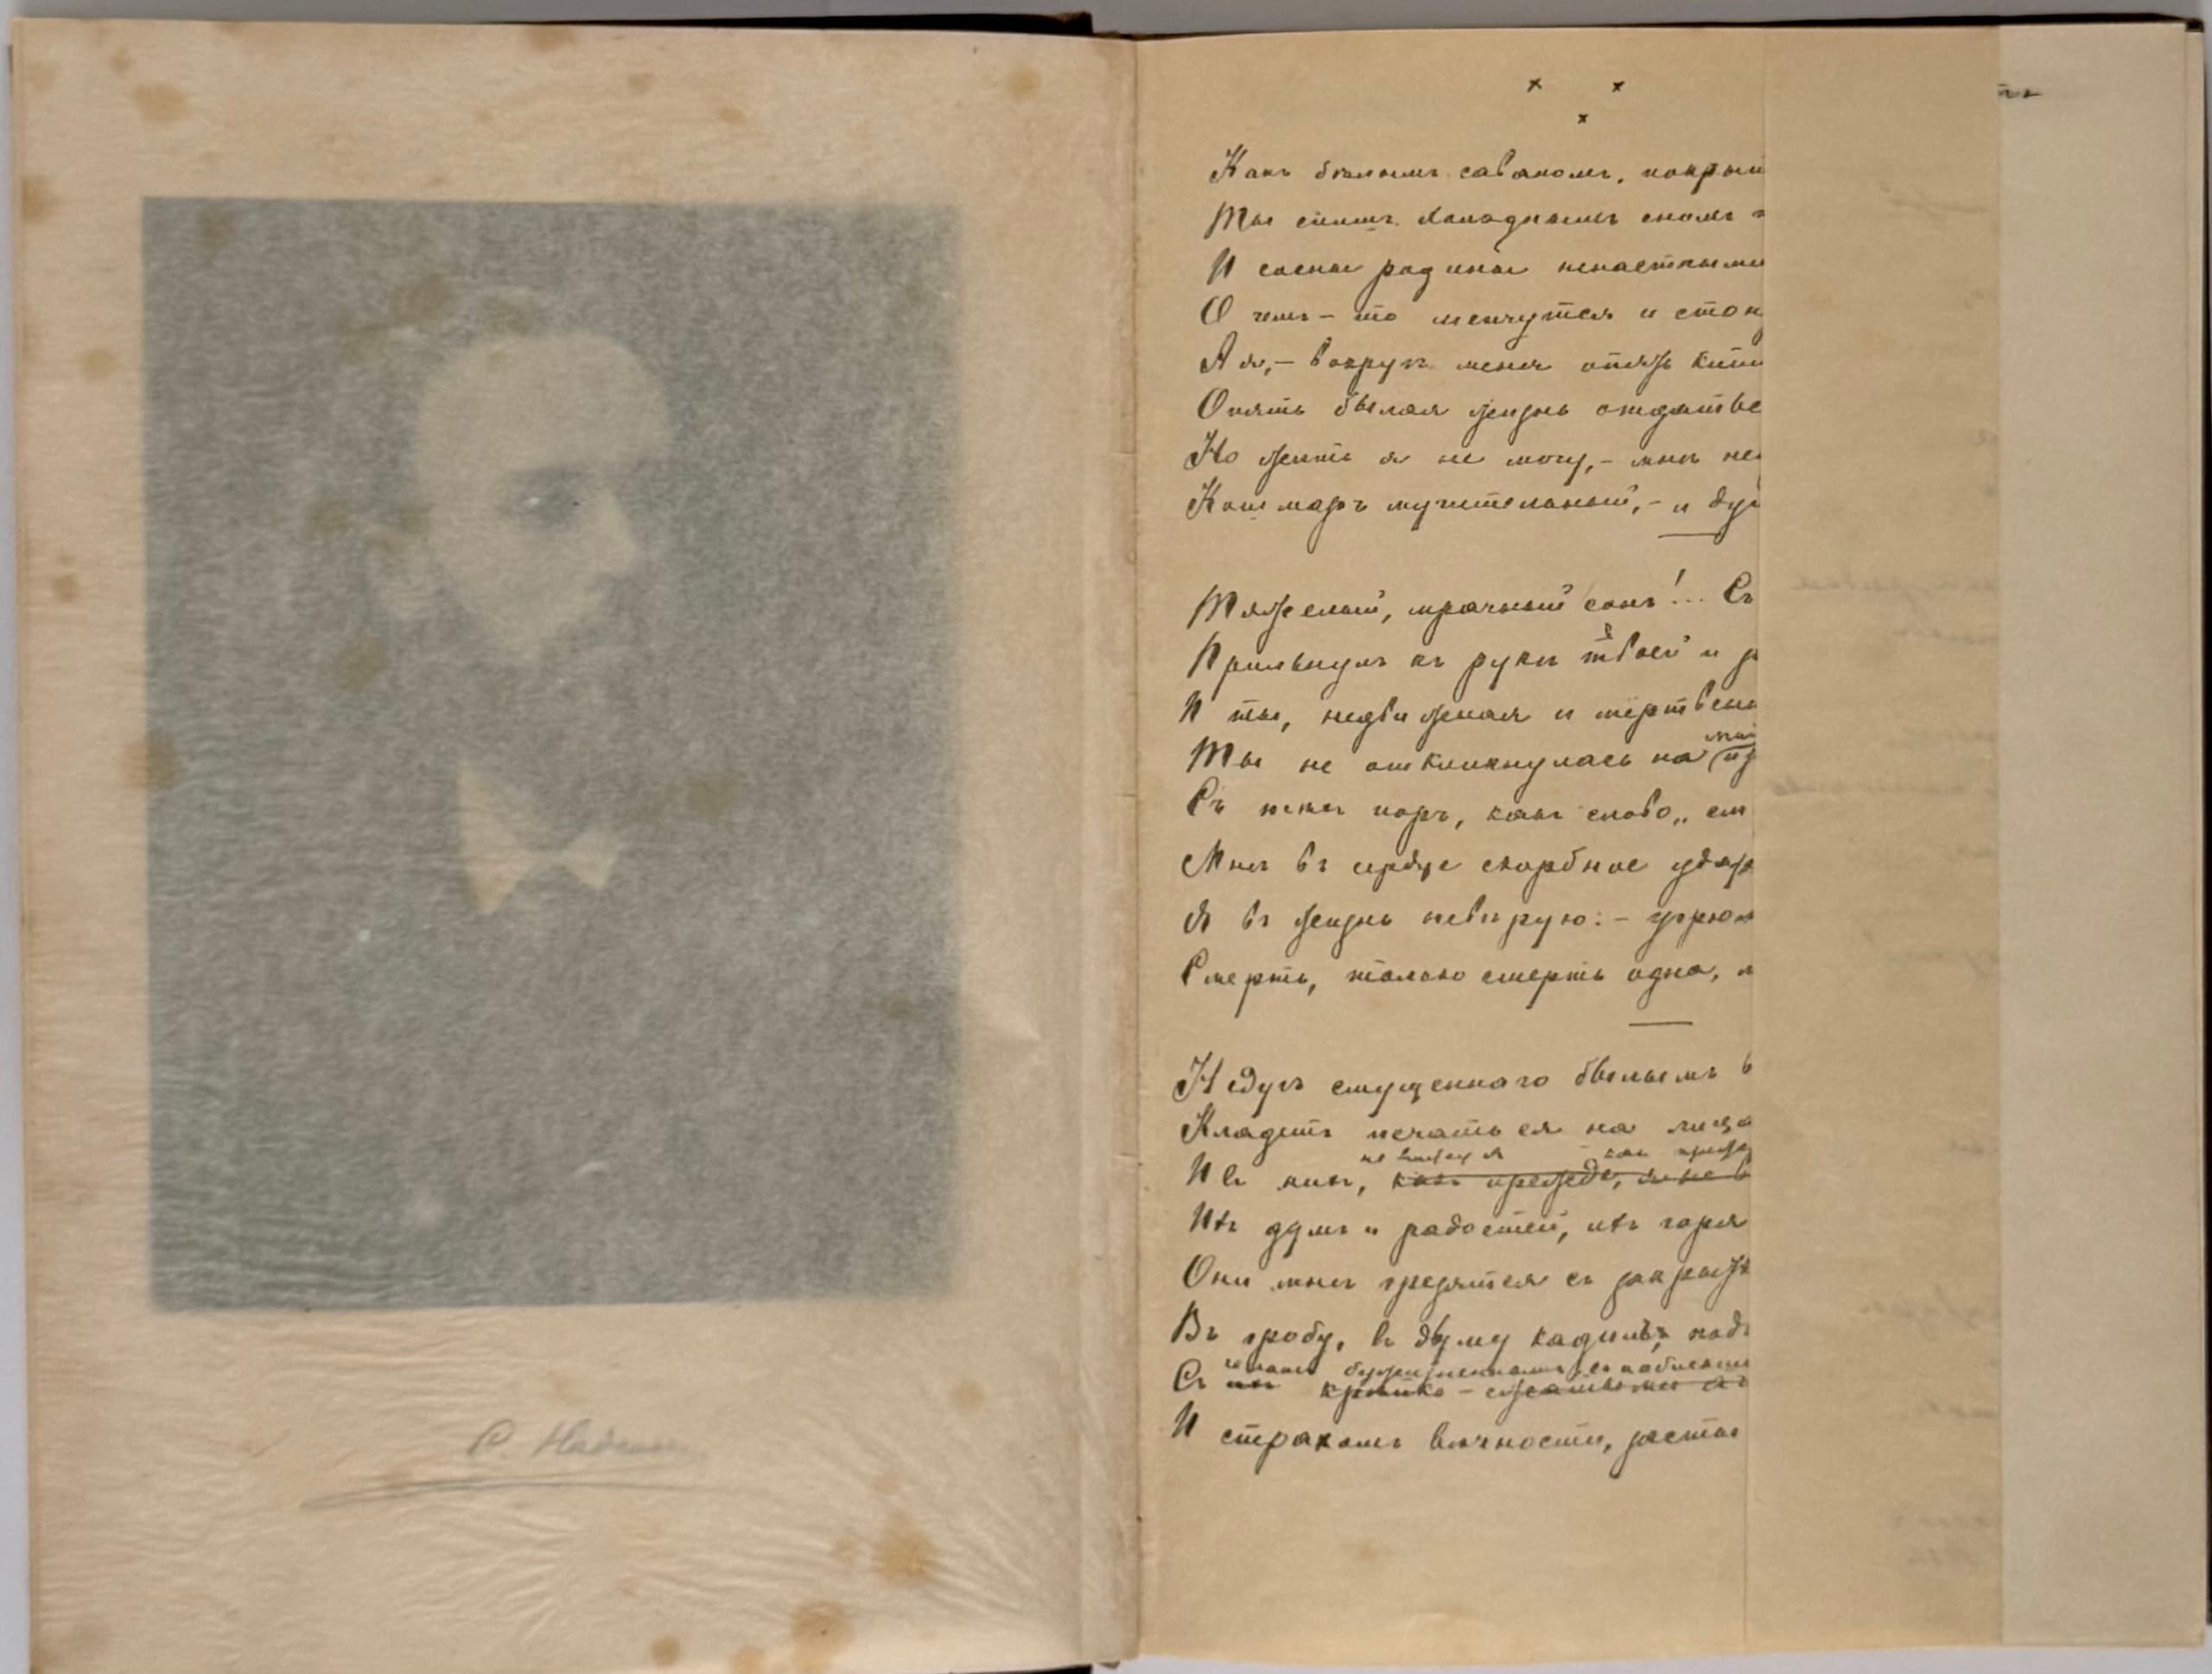 С. Надсон
× ×
×
Какъ бѣлымъ саваномъ, покрыт
Ты спишь холоднымъ сномъ
И сосны родины ненастными
О чемъ-то мечутся и стон
А я,– вокругъ меня опять кипи
Опять былая жизнь отдатьс
Но жить я не могу,– мнѣ не
Кошмаръ мучительный,– и ду
Тяжелый, мрачный сонъ!... Съ
Прильнулъ къ рукѣ твоей и
И ты, недвижная и мертвен
Ты не откликнулась на
Съ тѣхъ поръ, какъ слово „см
Мнѣ въ сердце скорбное удар
Я въ жизнь невѣрую:– угрюм
Смерть, только смерть одна,
Недугъ смущеннаго былымъ в
Кладетъ печать ея на лица
не вижу я какъ прежд
И въ нихъ, какъ прежде, я не в
Ихъ думъ и радостей, ихъ горя
Они мнѣ грезятся съ закрыт
Въ гробу, въ дыму кадилъ, подъ
безжизненнымъ, съ поблекши
Съ ихъ кротко-сжатыми
И страхомъ вѣчности, засты